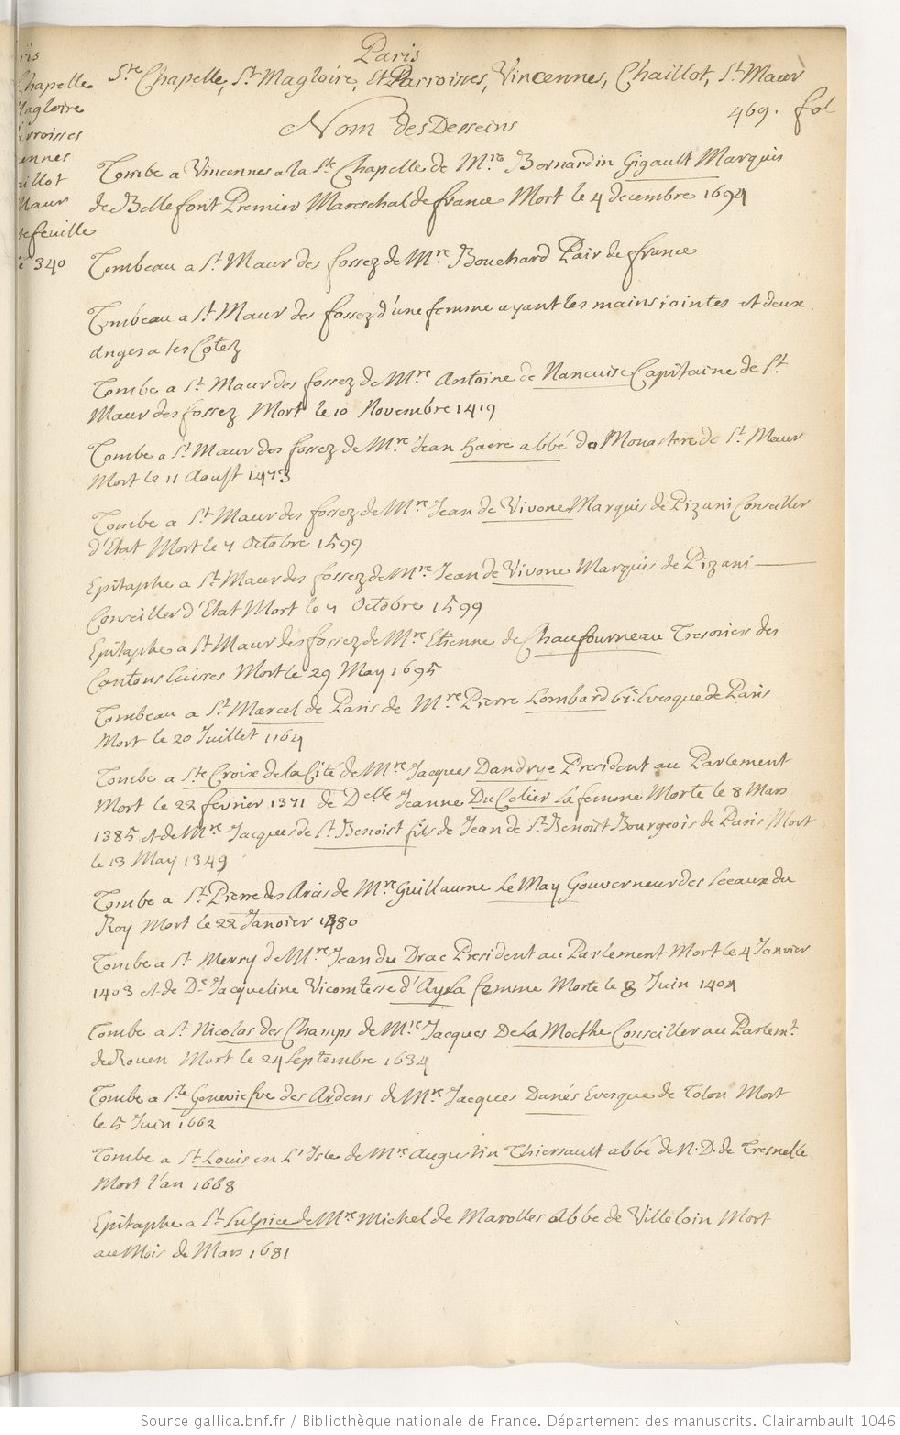 Paris
Ste Chapelle, St Magloire, et Parroisses, Vincennes, Chaillot, St Maur
469. fol
Nom des Desseins
Chapelle
Magloire
rroisses
ennes
illot
Maur
tefeuille
340
Tombe a Vincennes a la Ste Chapelle de Mre Bernardin Gigault Marquis
de Bellefont Premier Mareschal de france Mort le 4 decembre 1694
Tombeau a St Maur des fossez de Mre Bouchard Pair de france
Tombeau a St Maur des fossez d'une femme ayant les mains jointes et deux
anges a ses Cotez
Tombe a St Maur des fossez de Mre Antoine de Nancuise Capitaine de St
Maur des fossez Mort le 10 Novembre 1419
Tombe a St Maur des fossez de Mre Jean abbé du Monastere de St Maur
Mort le 11 Aoust 1473
Tombe a St Maur des fossez de Mre Jean de Vivone Marquis de Pizani Conseiller
d'Etat Mort le 7 Octobre 1599
Epitaphe a St Maur des fossez de Mre Jean de Vivone Marquis de Pizani
Conseiller d'Etat Mort le 7 Octobre 1599
Epitaphe a St Maur des fossez de Mre Etienne de Chaufourneau Tresorier des
Mort le 29 May 1695
Tombeau a St Marcel de Paris de Mre Pierre Lombard 61. Evesque de Paris
Mort le 20 Juillet 1164
Tombe a Ste Croix de la Cité de Mre Jacques Dandrye President au Parlement
Mort le 22 fevrier 1371 de Delle Jeanne Du Celier sa femme Morte le 8 Mars
1385 et de Mre Jacques de St Benoist fils de Jean de St Benoist Bourgeois de Paris Mort
le 13 May 1349
Tombe a St Pierre des Arcis de Mre Guillaume Le May Gouverneur des Sceaux du
Roy Mort le 22 Janvier 1480
Tombe a St Merry de Mre Jean du Drac President au Parlement Mort le 4 Janvier
1403 et de De Jacqueline Vicomtesse d'Ay sa femme Morte le 8 Juin 1404
Tombe a St Nicolas des Champs de Mre Jacques De la Mothe Conseiller au Parlemt
de Rouen Mort le 24 Septembre 1634
Tombe a Ste Geneviefve des Ardens de Mre Jacques Danés Evesque de Tolon Mort
le 5 Juin 1662
Tombe a St Louis en L'Isle de Mre Augustin Thiersault abbé de N. D. de Tresnelle
Mort l'an 1668
Epitaphe a St Sulpice de Mre Michel de Marolles Abbé de Villeloin Mort
au Mois de Mars 1681
Source gallica.bnf.fr / Bibliothèque nationale de France. Département des manuscrits. Clairambault 1046